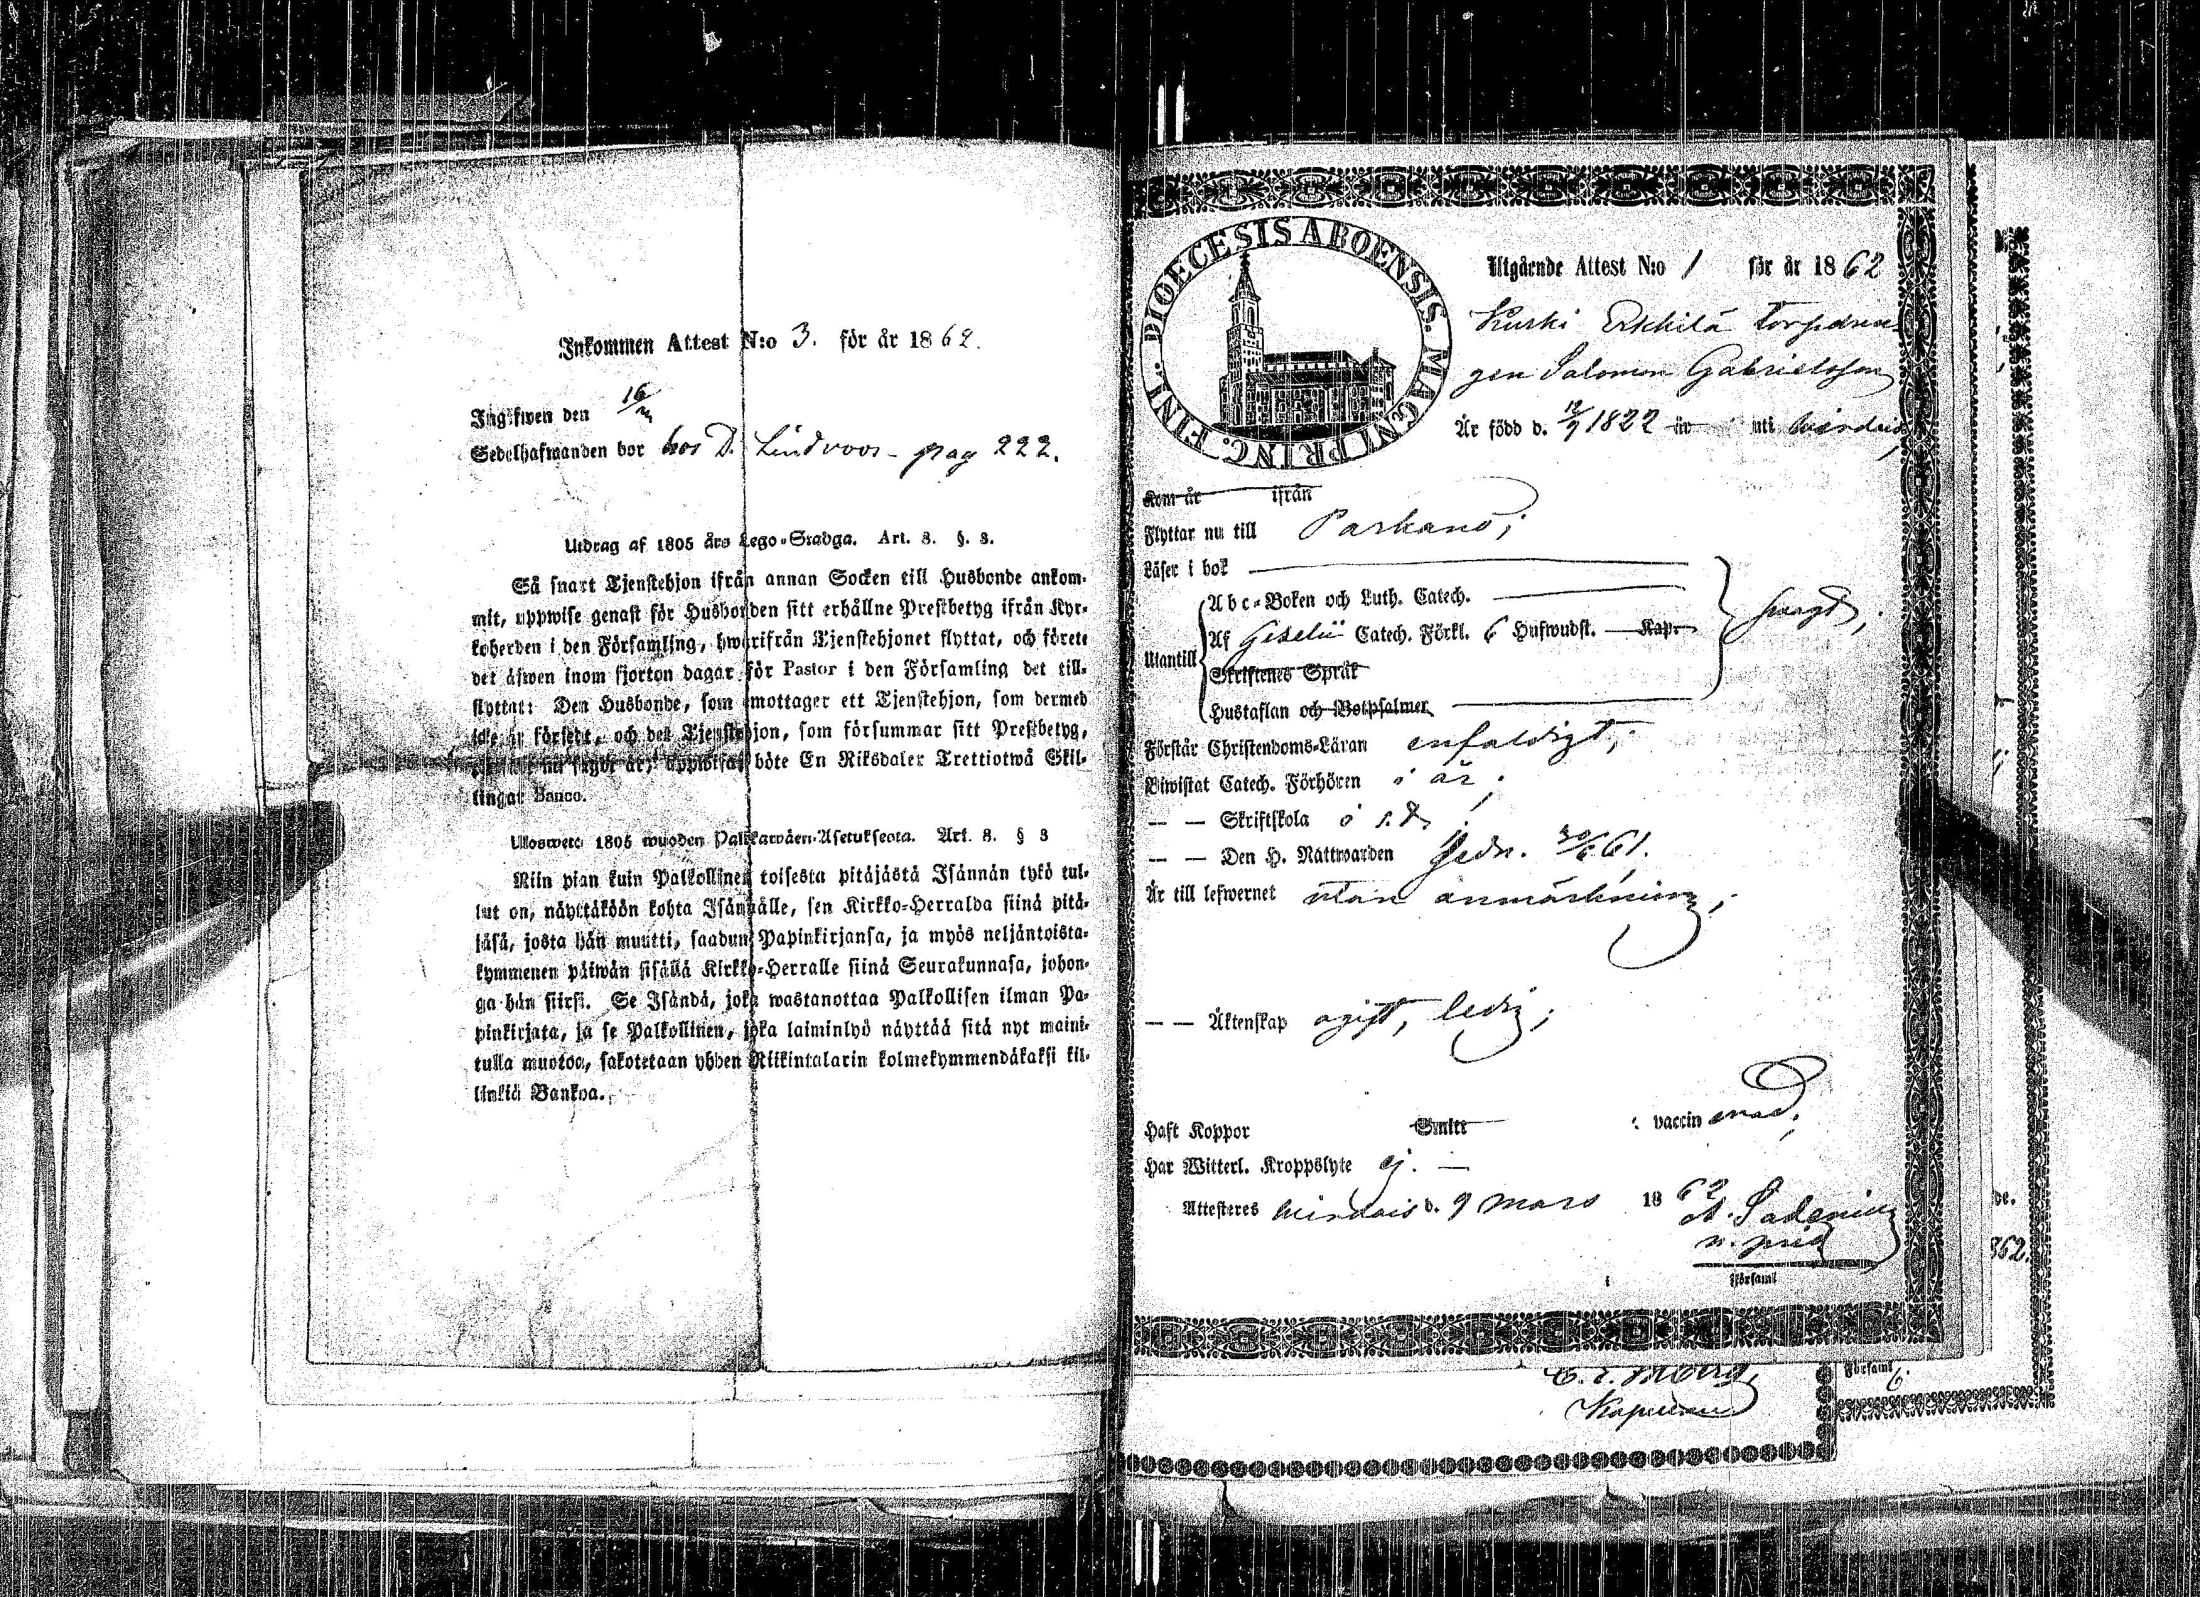 Inkommen Attest N:o 3. för år 1862.
Ingifwen den 16/3
Sedelhafwanden bor hos D. Lindroos - pag 222.
Utdrag af 1805 års Lego-Stadga. Art. 8. §. 3.
Så snart Tjenstehjon ifrån annan Socken till Husbonde ankom-
mit, uppwise genast för Husbonden sitt erhållne Prestbetyg ifrån Kyr-
koherden i den Församling, hwarifrån Tjenstehjonet flyttat, och förete
det äfwen inom fjorton dagar för Pastor i den Församling det till-
flyttat: Den Husbonde, som emottager ett Tjenstehjon, som dermed
icke är försedt, och det Tjenstehjon, som försummar sitt Prestbetyg,
uppwisa, böte En Riksdaler Trettiotwå Skil-
lingar Banco.
Uloswето 1805 wuoden Palkkawäen-Asetuksesta. Art. 8. § 3
Niin pian kuin Palkollinen toisesta pitäjästä Isännän tykö tul-
lut on, näyttäköön kohta Isännälle, sen Kirkko-Herralda siinä pitä-
jäsä, josta hän muutti, saadun Papinkirjansa, ja myös neljäntoista-
kymmenen päiwän sisällä Kirkko-Herralle siinä Seurakunnasa, johon-
ga hän siirsi. Se Isändä, joka wastanottaa Palkollisen ilman Pa-
pinkirjata, ja se Palkollinen, joka laiminlyö näyttää sitä nyt maini-
tulla muotoa, sakotetaan yhden Riikintalarin kolmekymmendäkaksi kil-
linkiä Bankoa.
DIOECESIS ABOENSIS. MAGNI PRINC. FINL.
Utgående Attest N:o 1 för år 1862
Kurki Erkkilä torpdren-
gen Salomon Gabrielsson
Är född d. 12/7 1822 uti Wirdois,
Kom år ifrån
Flyttar nu till Parkano;
Läser i bok
Abc-Boken och Luth. Catech.
Utantill Af Gezelii Catech. Förkl. 6 Hufwudst. Kap. swagt,
Skriftenes Språk
Hustaflan och Botpsalmer
Förstår Christendoms-Läran enfaldigt,
Biwistat Catech. Förhören i år;
— — Skriftskola
— — Den H. Nattwarden sedn. 30/6 61.
Är till lefwernet utan anmärkning;
— — Äktenskap ogift, ledig;
Haft Koppor Smitt vaccinerad;
Har Witterl. Kroppslyte ej. —
Attesteres Wirdois d. 9 Mars 1862
Församl
de.
862.
Kapellan
Församl.